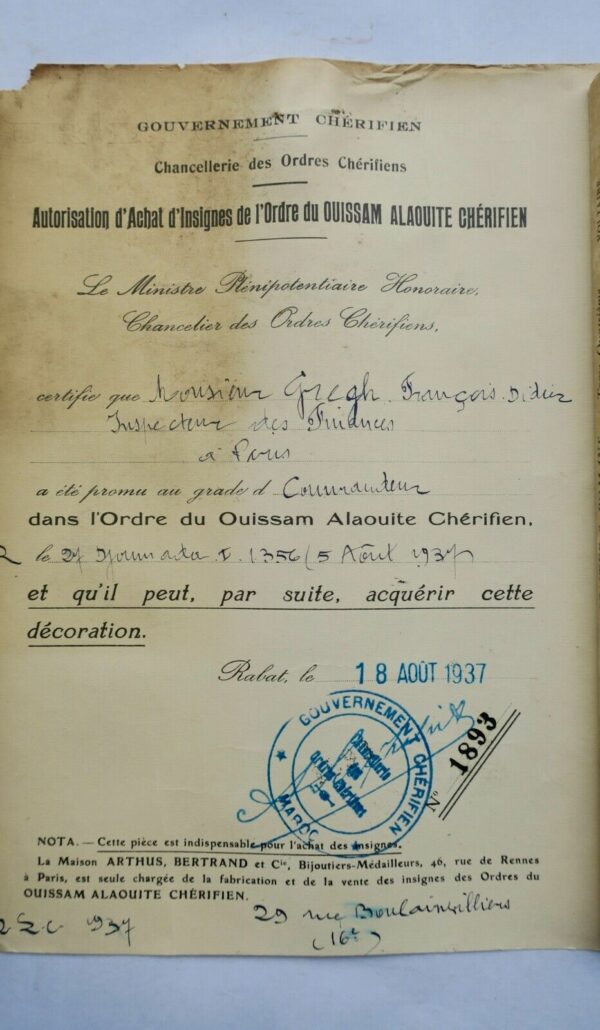 GOUVERNEMENT CHÉRIFIEN
Chancellerie des Ordres Chérifiens
Autorisation d'Achat d'Insignes de l'Ordre du OUISSAM ALAOUITE CHÉRIFIEN
Le Ministre Plénipotentiaire Honoraire,
Chancelier des Ordres Chérifiens,
certifie que Monsieur Gregh François. Didier
Inspecteur des Finances
à Paris
a été promu au grade d Commandeur
dans l'Ordre du Ouissam Alaouite Chérifien,
le 27 Joumada I. 1356 (5 Août 1937)
et qu'il peut, par suite, acquérir cette
décoration.
Rabat, le 18 AOÛT 1937
GOUVERNEMENT CHÉRIFIEN
Chancellerie
des
Ordres Chérifiens
MAROC
N° 1893
NOTA. — Cette pièce est indispensable pour l'achat des insignes.
La Maison ARTHUS, BERTRAND et Cie, Bijoutiers-Médailleurs, 46, rue de Rennes
à Paris, est seule chargée de la fabrication et de la vente des insignes des Ordres du
OUISSAM ALAOUITE CHÉRIFIEN.
29 rue Boulainvilliers
(16e)
1937